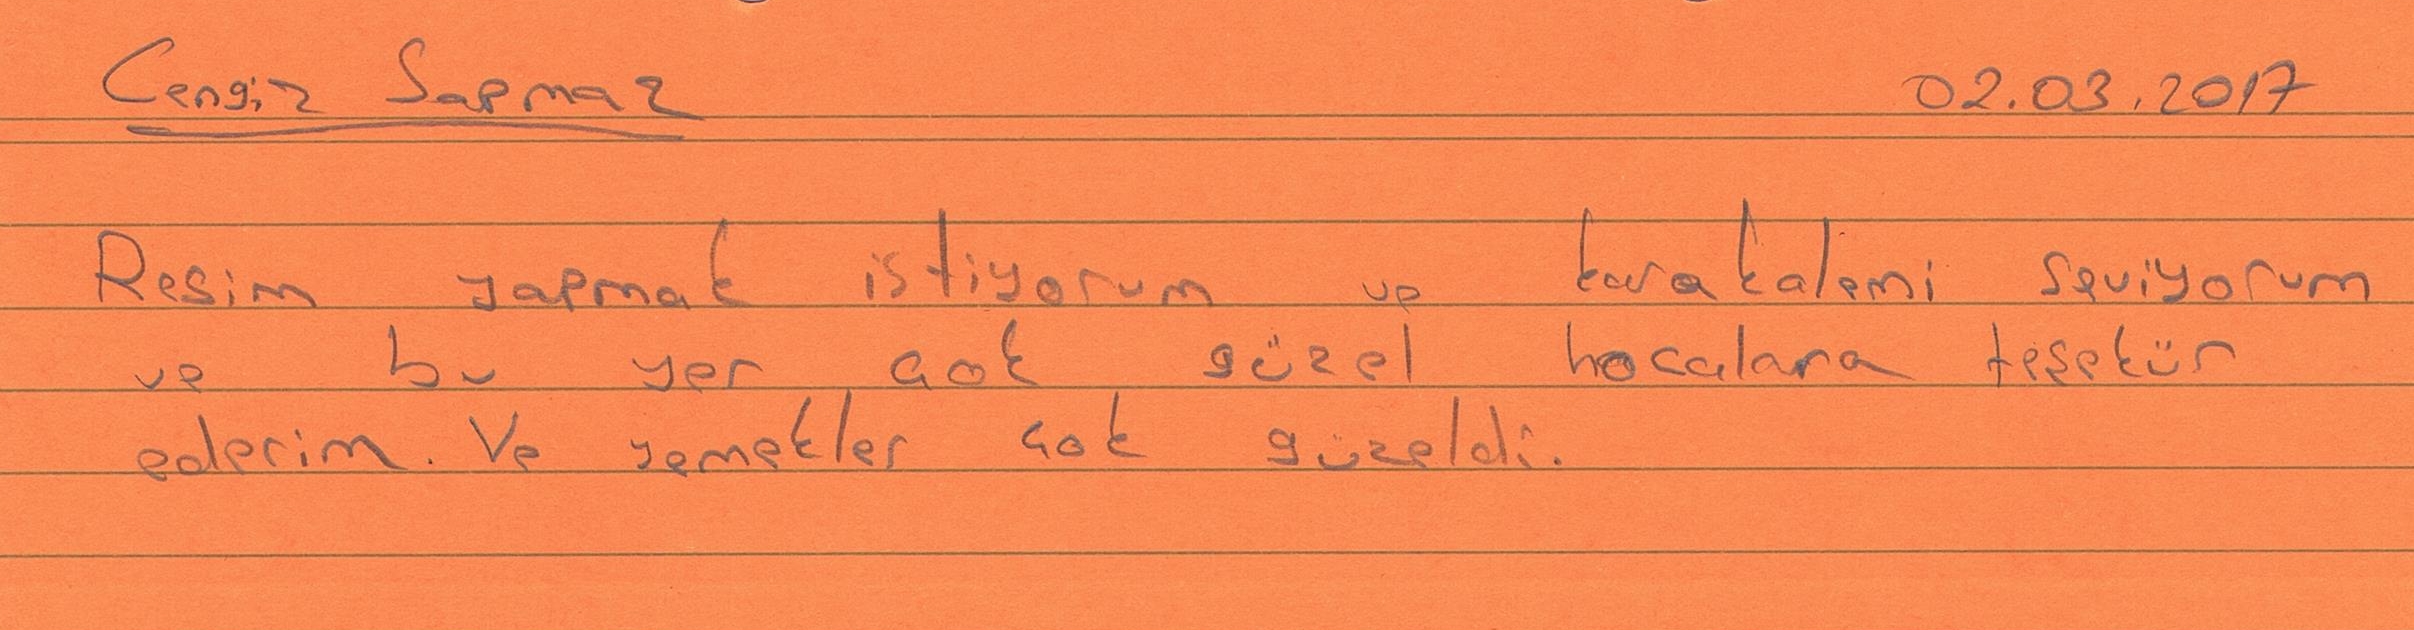 Cengiz Sapmaz 02.03.2017
Resim yapmak istiyorum ve karakalemi seviyorum
ve bu yer çok güzel hocalara teşekür
ederim. Ve yemekler çok güzeldi.